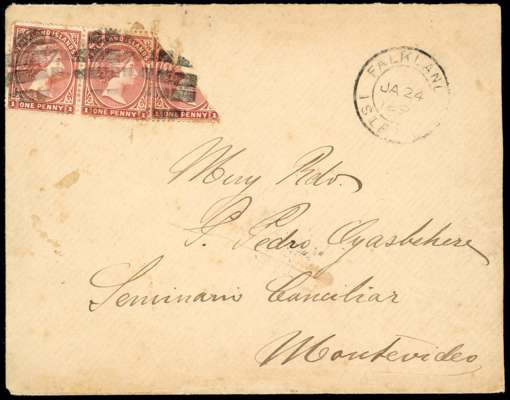 FALKLAND ISLANDS
1 ONE PENNY 1
1 ONE PENNY 1
1 ONE PENNY 1
FALKLAND ISLA
JA 24
Muy Rdo.
P. Pedro Oyasbehere
Seminario Conciliar
Montevideo